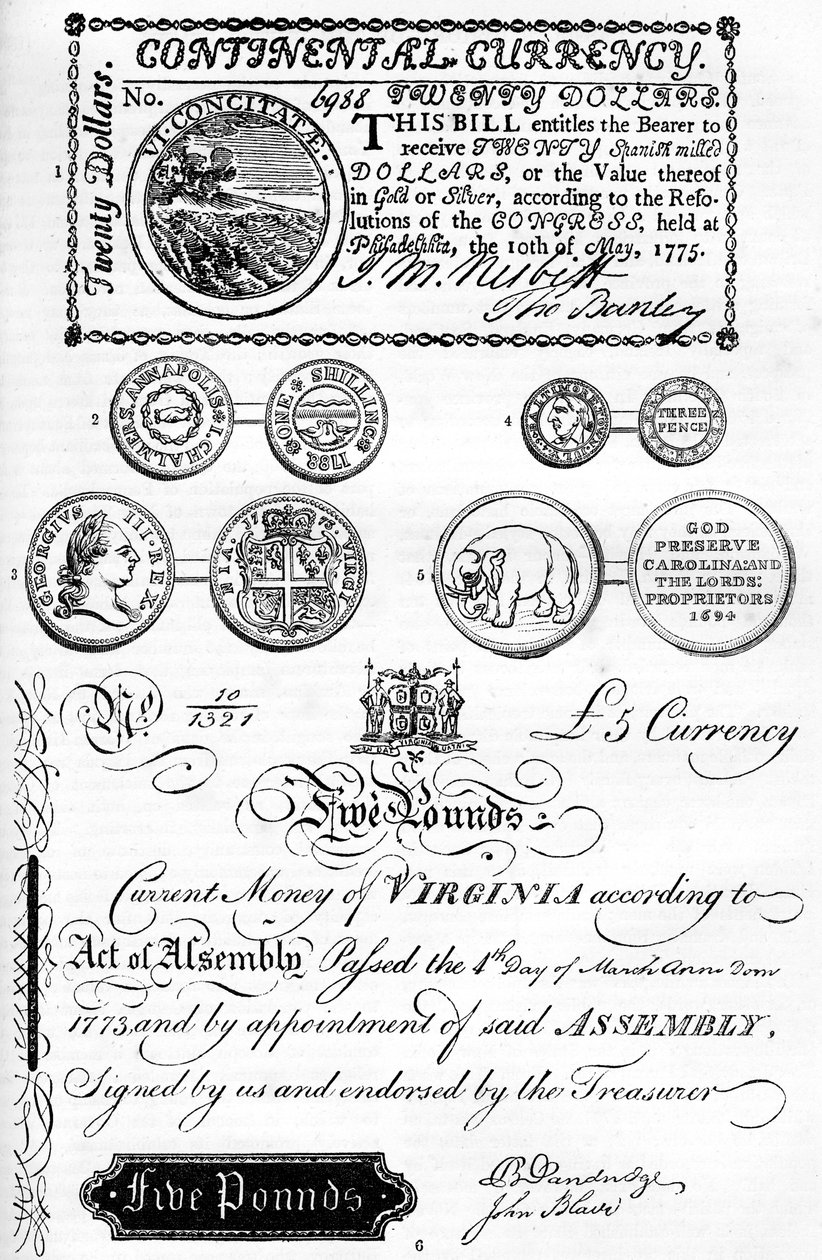 CONTINENTAL CURRENCY.
Twenty Dollars.
No. 6988 TWENTY DOLLARS.
VI CONCITATÆ.
THIS BILL entitles the Bearer to
receive TWENTY Spanish milled
DOLLARS, or the Value thereof
in Gold or Silver, according to the Reſo-
lutions of the CONGRESS, held at
Philadelphia, the 10th of May, 1775.
J. M. Nesbitt
Tho
1
2
I. CHALMERS. ANNAPOLIS
ONE SHILLING 1783
4
BALTIMORE TOWN JUL. 4
STANDISH BARRY
THREE
PENCE
3
GEORGIVS III. REX.
VIRGINIA. 1773.
5
GOD
PRESERVE
CAROLINA: AND
THE LORDS:
PROPRIETORS
1694
No. 10/1321
EN DAT VIRGINIA QUARTAM
£5 Currency
Five Pounds
Current Money of VIRGINIA according to
Act of Aſsembly Paſsed the 4th Day of March Anno Dom
1773, and by appointment of said ASSEMBLY,
Signed by us and endorsed by the Treasurer
Five Pounds
John Blair
6